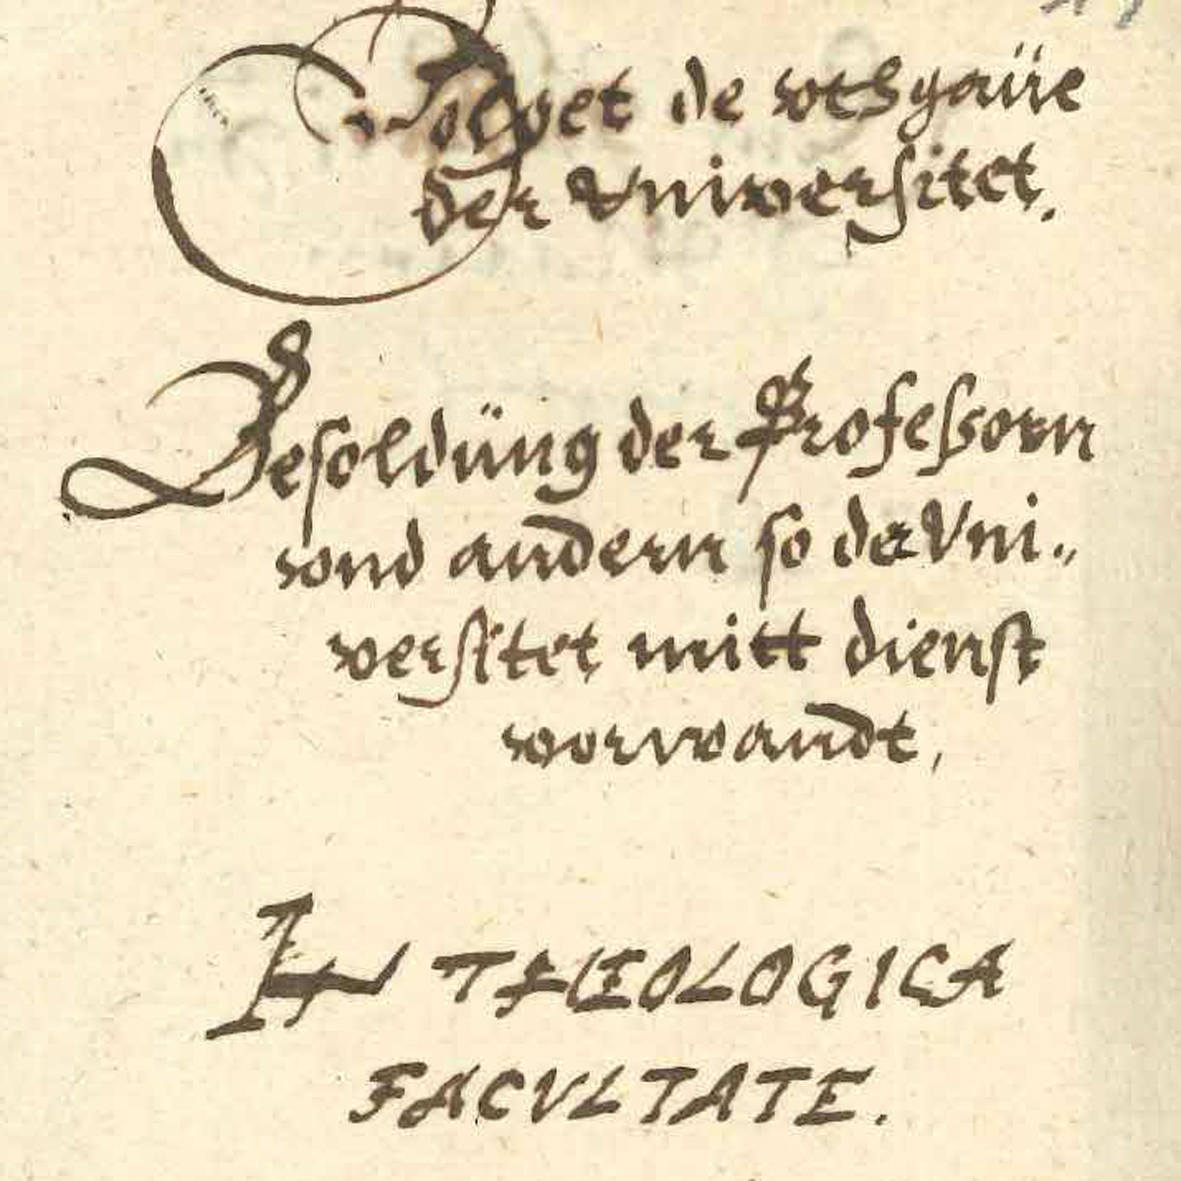 Volget de vthgaüe
der Vniversitet.
Besoldüng der Professorn
vnd andern so der Vni„
versitet mitt dienst
vorwandt,
IN THEOLOGICA
FACVLTATE.